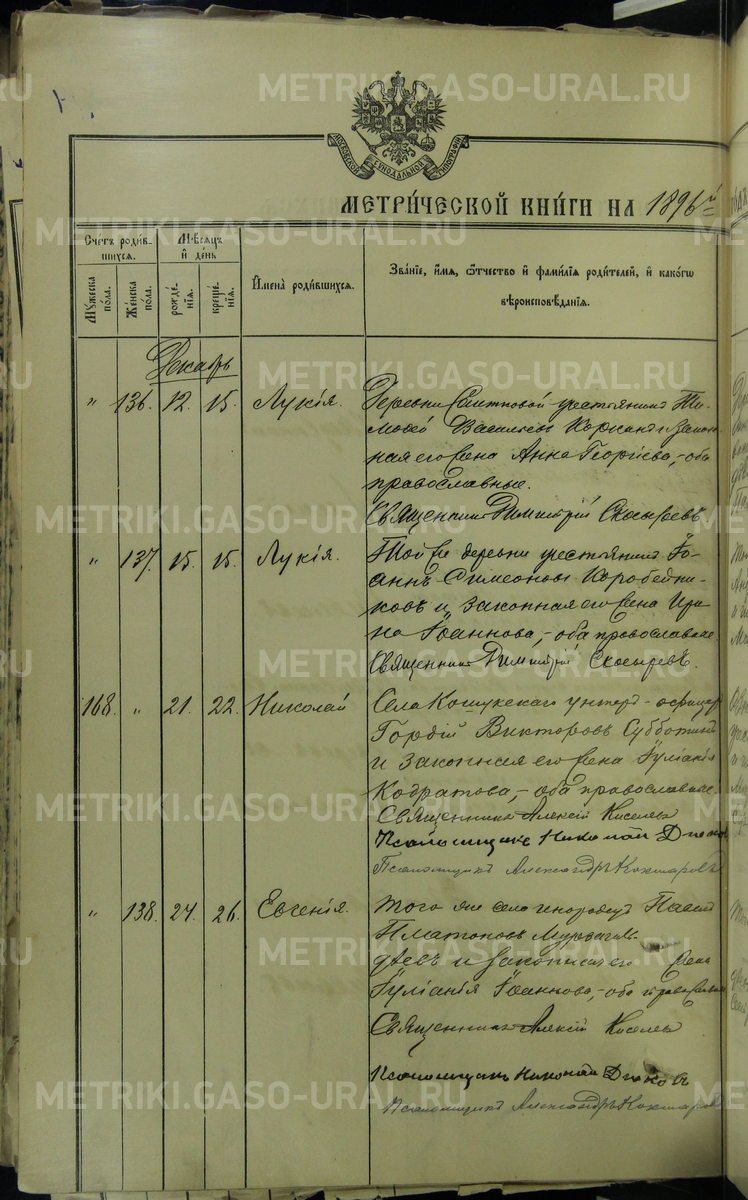 МОСКОВСКОЙ СѴНОДАЛЬНОЙ ТИПОГРАФІИ
МЕТРИ́ЧЕСКОЙ КНИ́ГИ НА 1896 й
Сче́тъ роди́в-
шихся.
Мѣ́сяцъ
и҆ де́нь
Му́жеска
по́ла.
Же́нска
по́ла.
рожде́-
нїя.
креще́-
нїя.
И҆мена̀ роди́вшихся.
Зва́нїе, и҆́мя, ѻ҆́тчество и҆ фами́лїя роди́телей, и҆ како́гѡ
вѣроисповѣ́данїя.
Декабрь
„ 136. 12. 15. Лукія.
Деревни крестьянинъ Ти-
моѳей Васильевъ и закон-
ная его жена Анна Георгіева, - оба
православные.
Священникъ Димитрій Скосыревъ
„ 137. 15. 15. Лукія.
Той же деревни крестьянинъ Іо-
аннъ Симеоновъ Коробейни-
ковъ и законная его жена Ири-
на Іоаннова, - оба православные.
Священникъ Димитрій Скосыревъ.
168. „ 21. 22. Николай
Села Кошукскаго унтеръ-офицеръ
Гордій Викторовъ Субботинъ
и законная его жена Іуліанія
Кодратова, - оба православные.
Священникъ Алексій Киселевъ
Псаломщикъ Николай
Псаломщикъ Александръ Кокшаровъ
„ 138. 24. 26. Евгенія.
того же села инородец Павелъ
Платоновъ
и законная его жена
Іуліанія Іоаннова, - оба православные
Священникъ Алексій Киселевъ
Псаломщикъ Николай
Псаломщикъ Александръ Кокшаровъ
METRIKI.GASO-URAL.RU